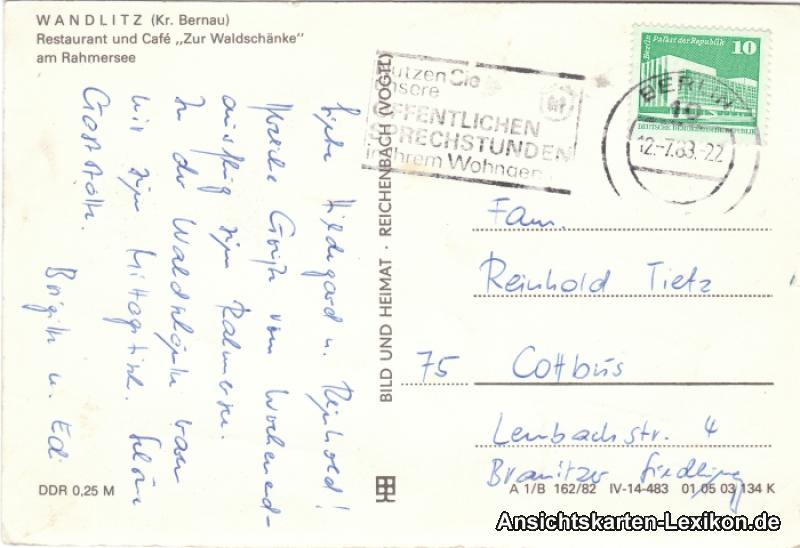 WANDLITZ (Kr. Bernau)
Restaurant und Café „Zur Waldschänke"
am Rahmersee
Liebe Hildegard u. Reinhold!
Herzliche Grüße vom Wochenend-
ausflug zum Rahmersee.
In der Waldschänke waren
wir zum Mittagstisch. Schöne
Gaststätte.
Brigitte u. Edi
BILD UND HEIMAT · REICHENBACH (VOGTL)
Nutzen Sie
unsere
ÖFFENTLICHEN
SPRECHSTUNDEN
in Ihrem Wohngeb
Berlin, Palast der Republik
10
DEUTSCHE DEMOKRATISCHE REPUBLIK
BERLIN
12.-7.83.-22
Fam.
Reinhold Tietz
75 Cottbus
Lenbachstr. 4
Branitzer Siedlung
DDR 0,25 M
A 1/B 162/82 IV-14-483 01 05 03 134 K
Ansichtskarten-Lexikon.de